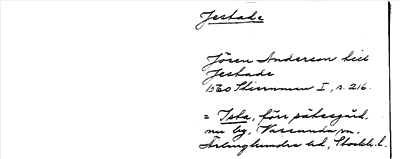 Jestade
Jören Anderson till
Jestade
1520 Stiernman I, s. 216.
= Ista, förr sätesgård,
nu by, Vassunda sn,
Ärlinghundra hd, Stockh. l.